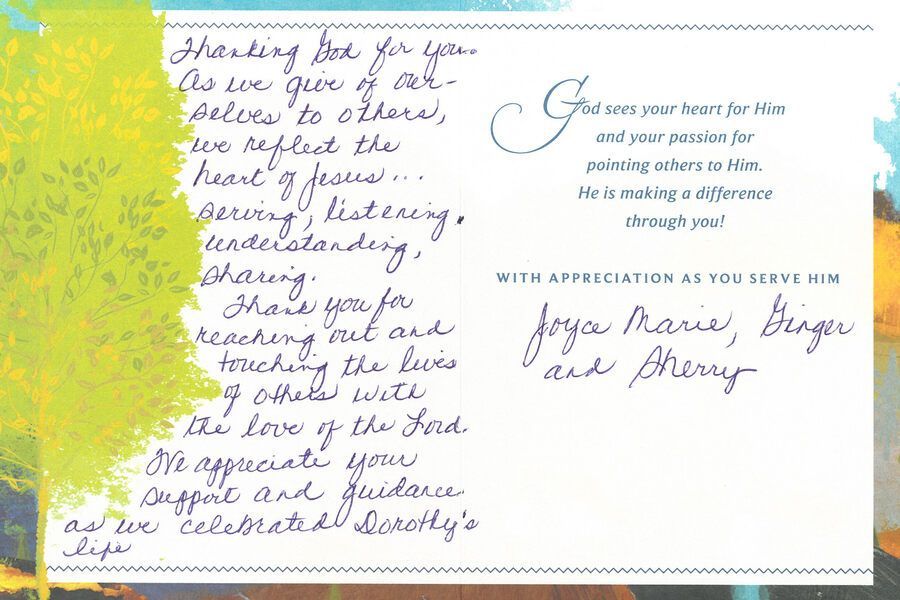 Thanking God for you..
As we give of our-
selves to others,
we reflect the
heart of Jesus...
serving, listening.
understanding,
sharing.
Thank you for
reaching out and
touching the lives
of others with
the love of the Lord.
We appreciate your
support and guidance
as we celebrated Dorothy's
life
God sees your heart for Him
and your passion for
pointing others to Him.
He is making a difference
through you!
WITH APPRECIATION AS YOU SERVE HIM
Joyce Marie, Ginger
and Sherry